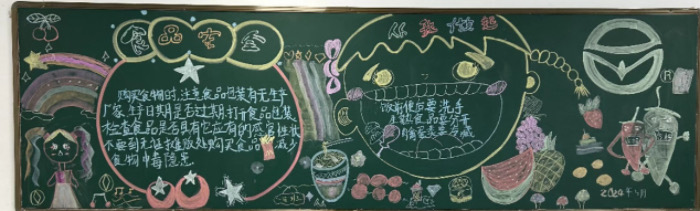 食品安全
从我做起
购买食物时,注意食品包装有无生产
厂家,生产日期是否过期,打开食品包装
检查食品是否具有它应有的感官性状
不要到无证摊贩处购买食品,减少
食物中毒隐患
饭前便后要洗手
生熟食品要分开
2024年